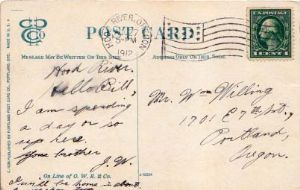 HOOD RIVER, OREGON
PM
1912
POST CARD
MESSAGE MAY BE WRITTEN ON THIS SIDE
ADDRESS ONLY ON THIS SIDE
CENT
Hood River
Hello Bill,
I am spending
a day or so
up here.
your brother
J.W.
On Line of O. W. R. & N. Co.
I will be home in about
Mr. Wm Willing
1701 E 7th St. N
Portland,
Oregon.